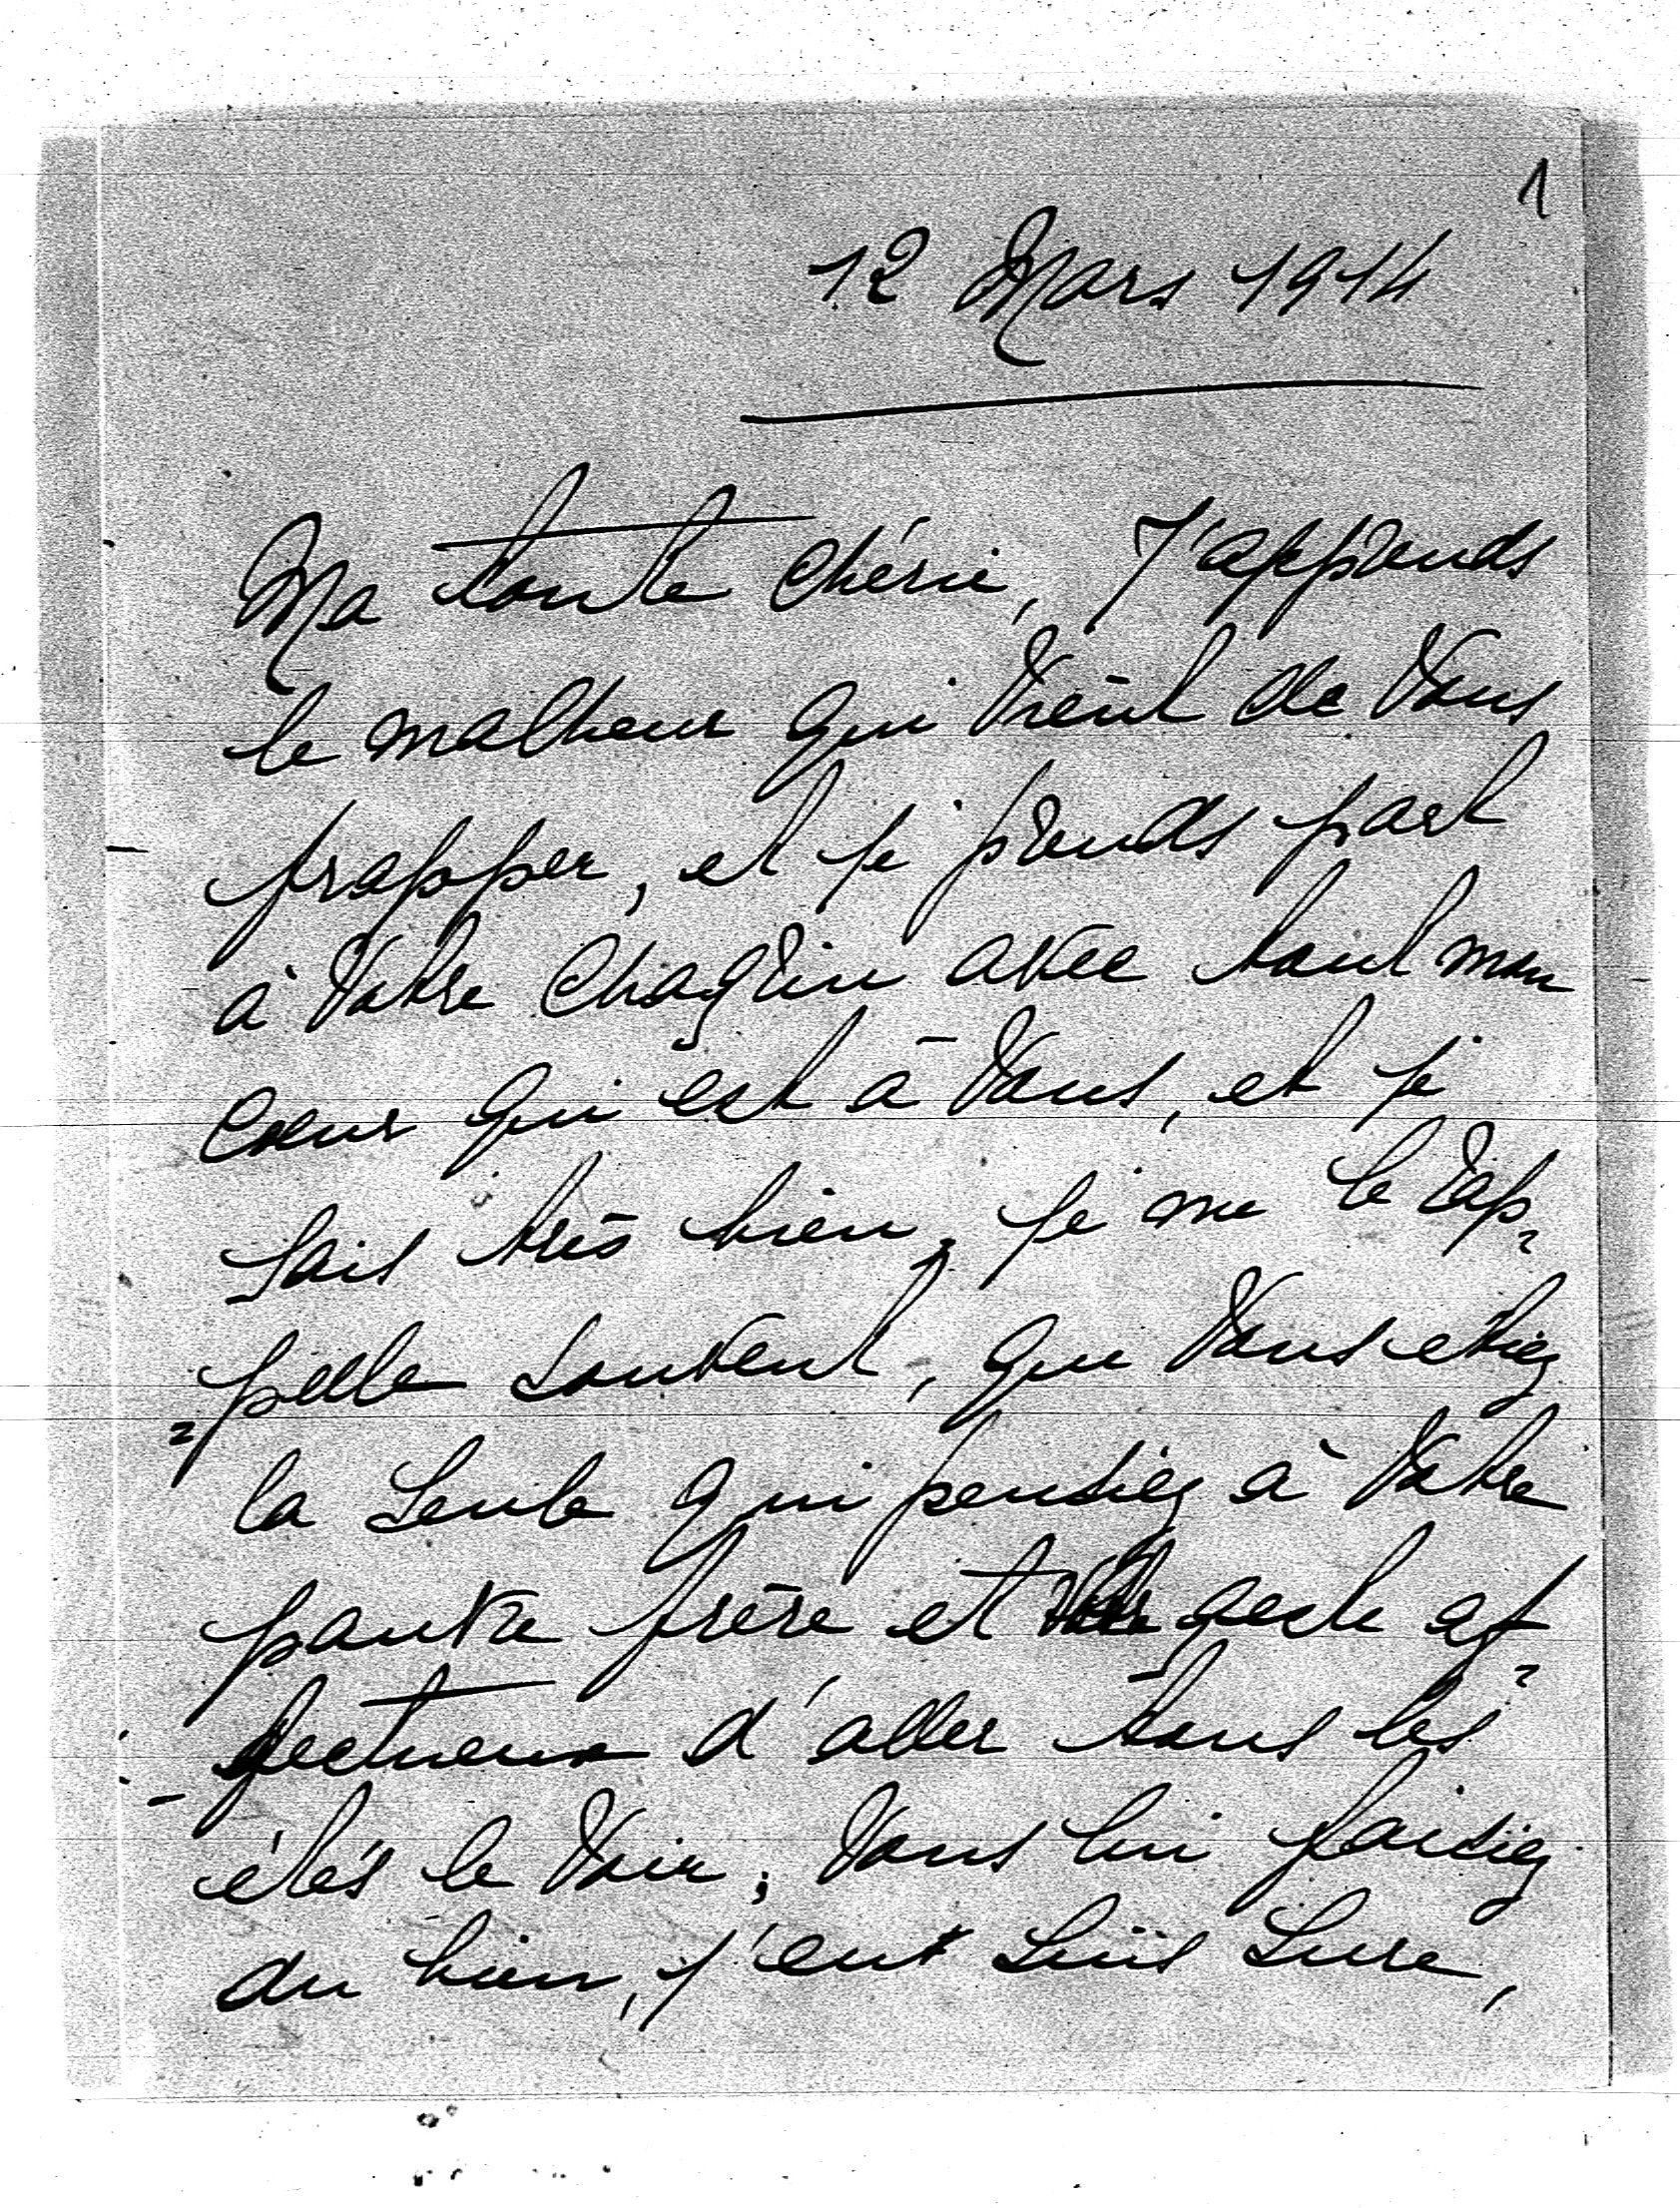 1
12 Mars 1914
Ma toute chérie, J'apprends
le malheur qui vient de vous
frapper, et je prends part
à votre chagrin avec tout mon
cœur qui est à vous, et je
sais très bien, je me le rap=
=pelle souvent, que vous etiez
la seule qui pensiez à votre
pauvre frère et votre geste af=
-fectueux d'aller tous les
étés le voir, vous lui faisiez
du bien, j'en suis sure,